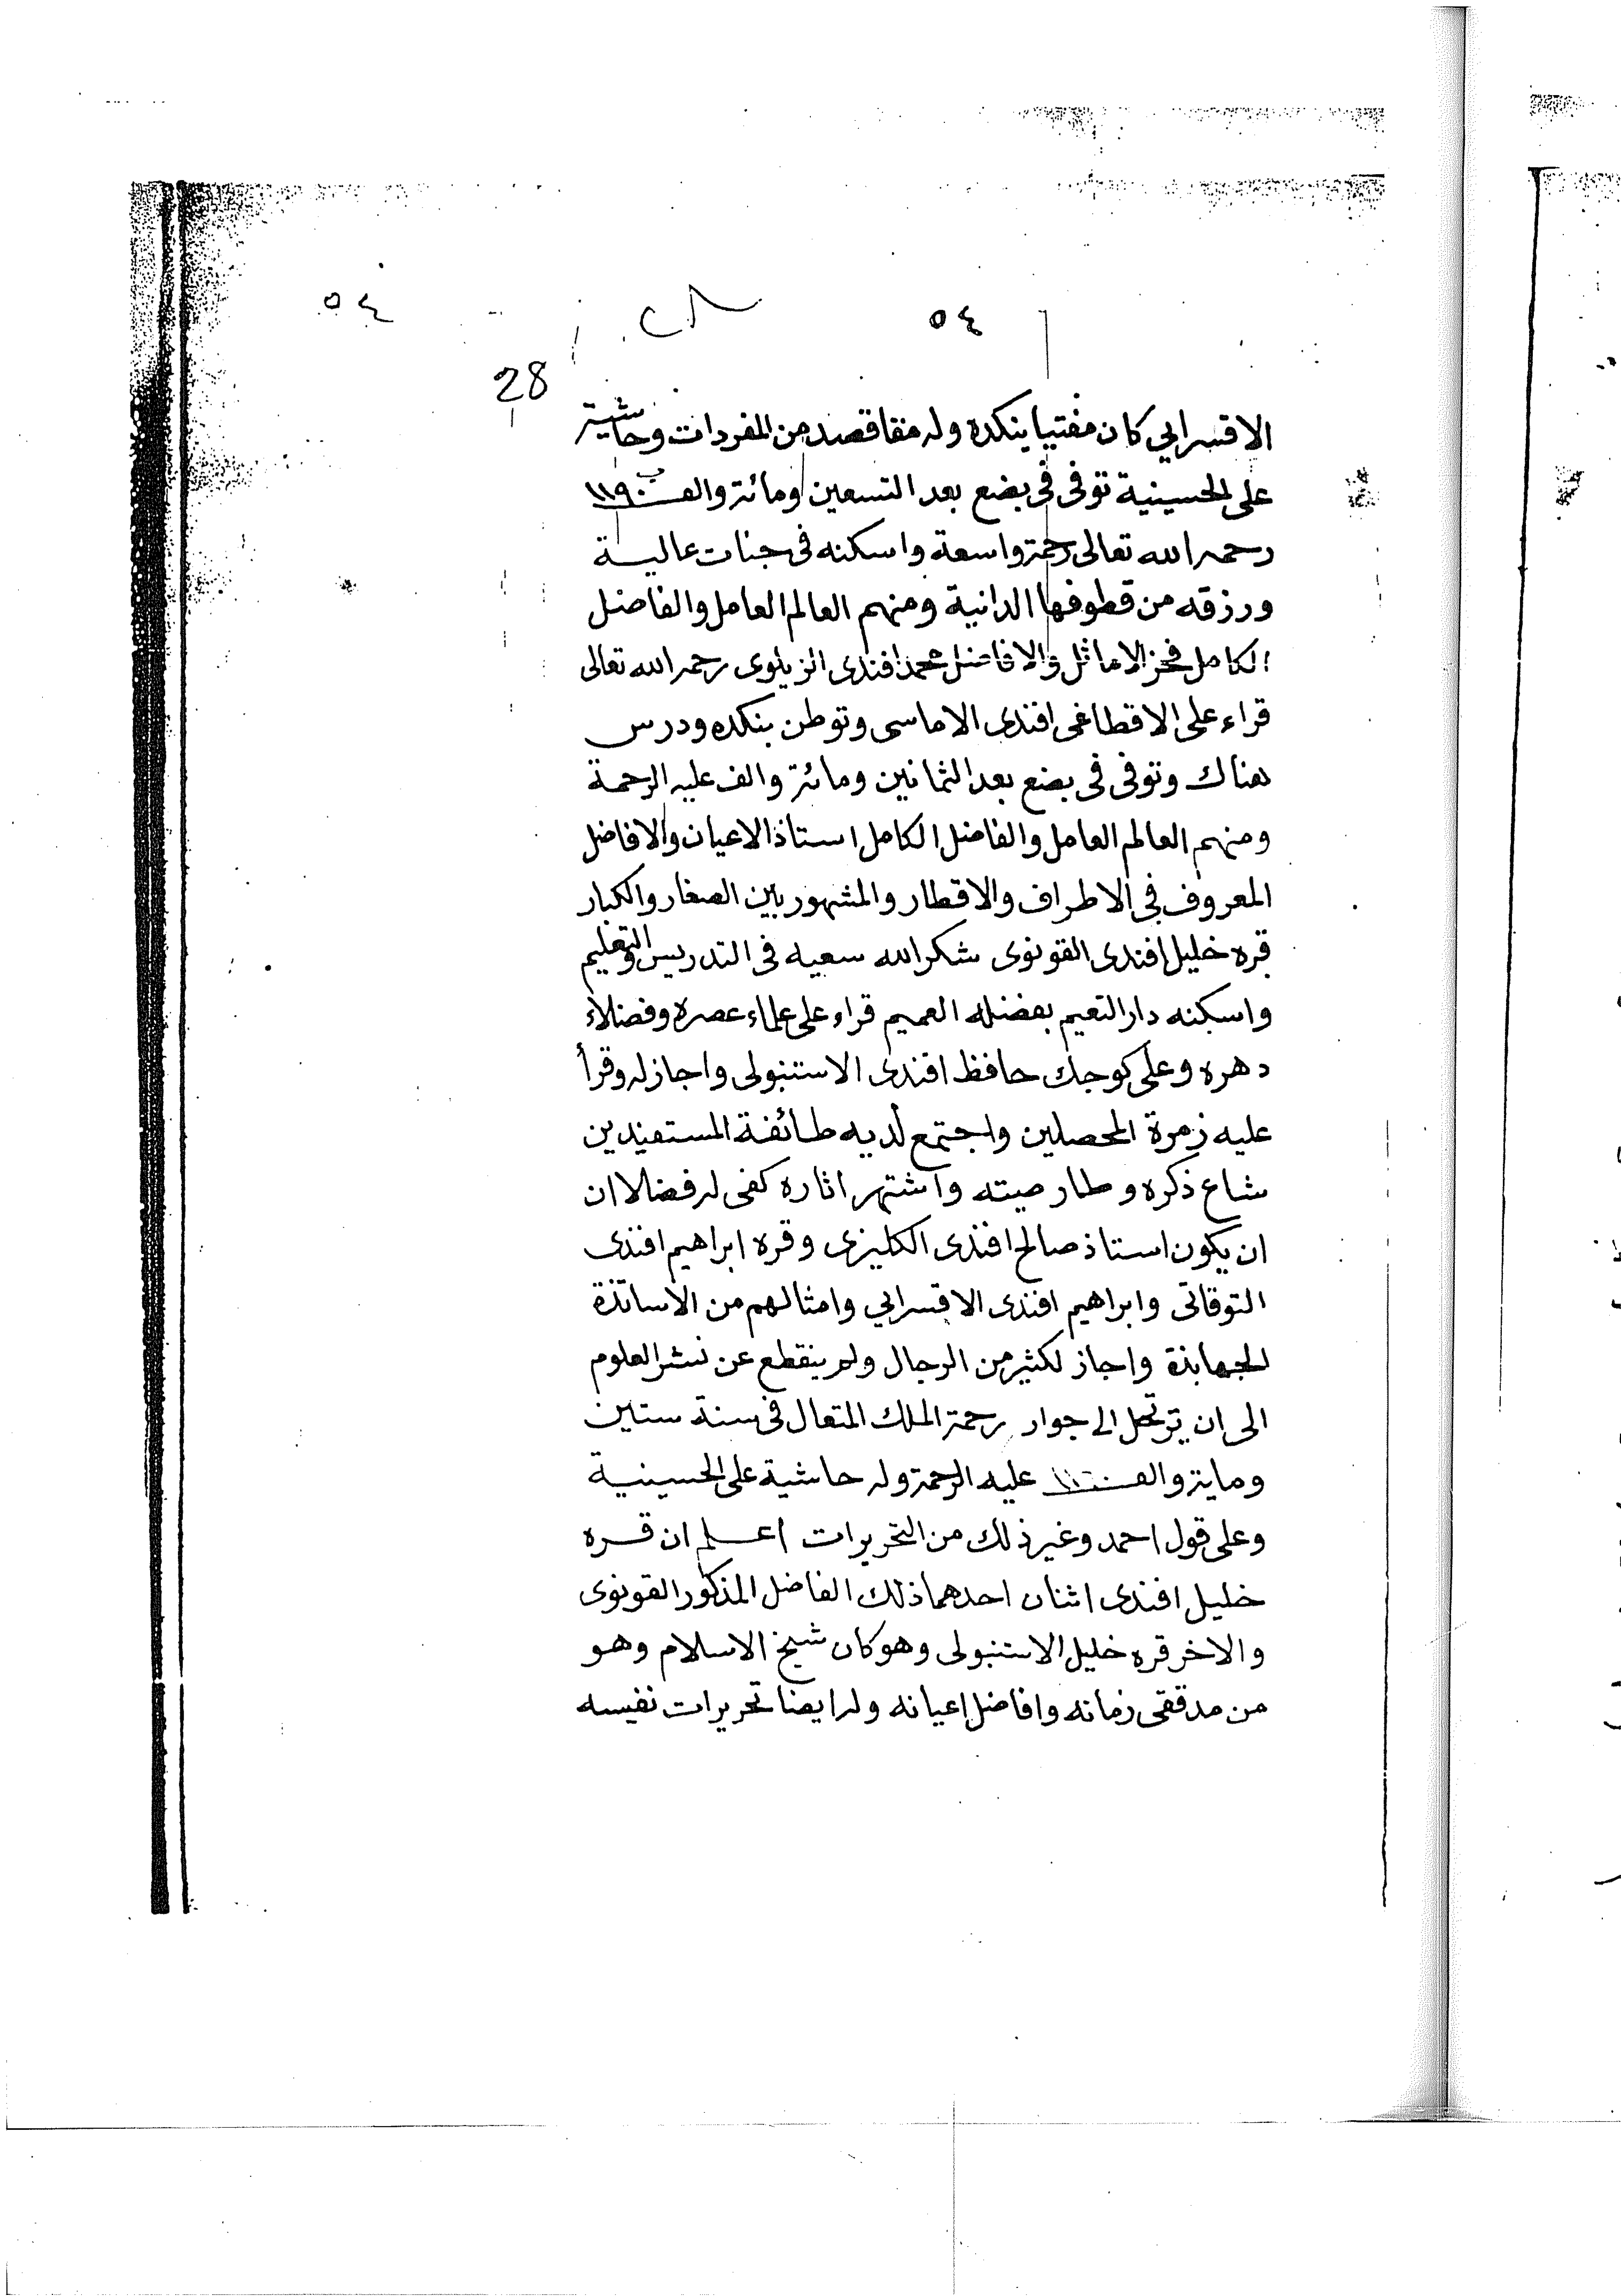 ٥٤
٥٤
٢٨
28
الاقسرايى كان مفتيا بنكده وله من المفردات وحاشية
على الحسينية توفى فى بضع بعد التسعين ومائة والف ١١٩٠
رحمه الله تعالى رحمة واسعة واسكنه فى جنات عالية
ورزقه من قطوفها الدانية ومنهم العالم العامل والفاضل
الكامل فخر الاماثل والافاضل محمد افندى الزيلوى رحمه الله تعالى
قراء على الاقطاغى افندى الاماسى وتوطن بنكده ودرس
هناك وتوفى فى بضع بعد الثمانين ومائة والف عليه الرحمة
ومنهم العالم العامل والفاضل الكامل استاذ الاعيان والافاضل
المعروف فى الاطراف والاقطار والمشهور بين الصغار والكبار
قره خليل افندى القونوى شكر الله سعيه فى التدريس والتعليم
واسكنه دار النعيم بفضله العميم قراء على علماء عصره وفضلاء
دهره وعلى كوجك حافظ افندى الاستنبولى واجاز له وقرأ
عليه زمرة المحصلين واجتمع لديه طائفة المستفيدين
شاع ذكره وطار صيته واشتهر اثاره كفى له فضلا ان
ان يكون استاذ صالح افندى الكليزى وقره ابراهيم افندى
التوقاتى وابراهيم افندى الاقسرايى وامثالهم من الاساتذة
الجهابذة واجاز لكثير من الرجال ولم ينقطع عن نشر العلوم
الى ان يرتحل الى جوار رحمة الملك المتعال فى سنة ستين
وماية والف عليه الرحمة وله حاشية على الحسينية
وعلى قول احمد وغير ذلك من التحريرات اعلم ان قره
خليل افندى اثنان احدهما ذلك الفاضل المذكور القونوى
والاخر قره خليل الاستنبولى وهو كان شيخ الاسلام وهو
من مدققى زمانه وافاضل اعيانه وله ايضا تحريرات نفيسه